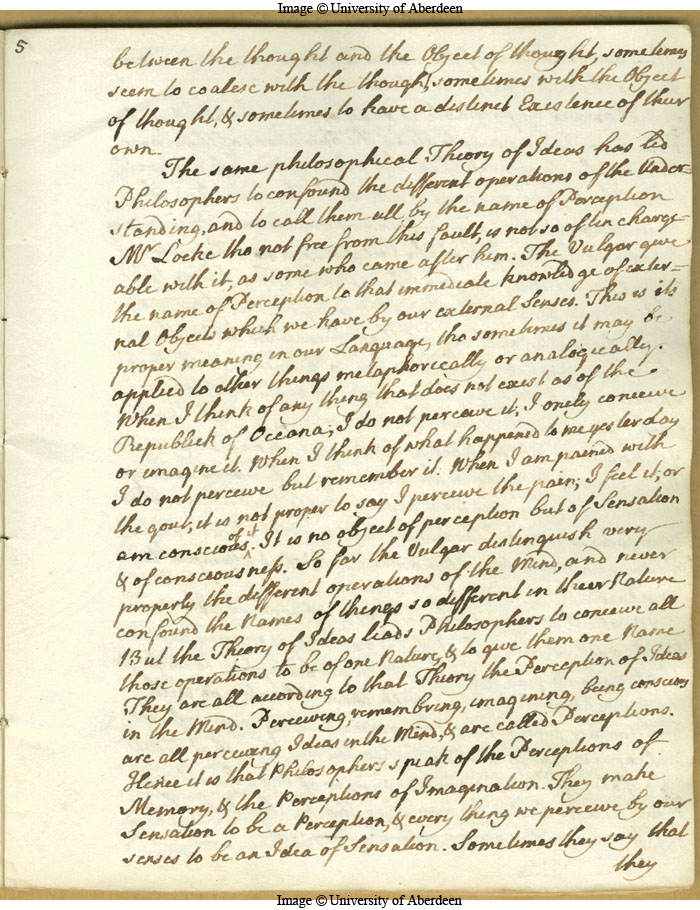 Image © University of Aberdeen
5
between the thought and the Object of thought, sometimes
seem to coalesc with the thought, sometimes with the Object
of thought, & sometimes to have a distinct Existence of their
own.
The same philosophical Theory of Ideas has led
Philosophers to confound the different operations of the Under=
standing, and to call them all by the name of Perception
Mr Locke tho not free from this fault, is not so often charge=
able with it, as some who came after him. The Vulgar give
the name of Perception to that immediate knowledge of exter=
nal Objects which we have by our external Senses. This is its
proper meaning in our Language, tho sometimes it may be
applied to other things metaphorically or analogically.
When I think of any thing that does not exist as of the
Republick of Oceana, I do not perceive it, I onely conceive
or imagine it. When I think of what happened to me yesterday
I do not perceive but remember it. When I am pained with
the gout, it is not proper to say I perceive the pain; I feel it, or
am conscious of it. It is no object of perception but of Sensation
& of consciousness. So far the Vulgar distinguish very
properly the different operations of the Mind, and never
confound the Names of things so different in their Nature
But the Theory of Ideas leads Philosophers to conceive all
those operations to be of one Nature, & to give them one Name
They are all according to that Theory the Perception of Ideas
in the Mind. Perceiving, remembring, imagining, being conscious
are all perceiving Ideas in the Mind, & are called Perceptions.
Hence it is that Philosophers speak of the Perceptions of
Memory, & the Perceptions of Imagination. They make
Sensation to be a Perception, & every thing we perceive by our
senses to be an Idea of Sensation. Sometimes they say that
they
Image © University of Aberdeen